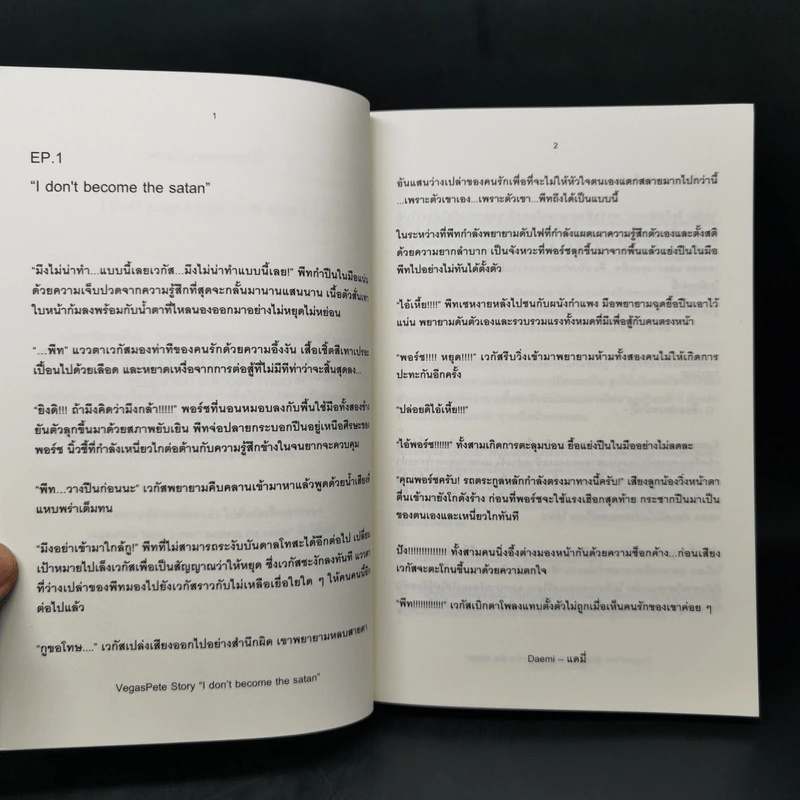 1
EP.1
"I don't become the satan"
"มึงไม่น่าทำ...แบบนี้เลยเวกัส...มึงไม่น่าทำแบบนี้เลย!" พีทกำปืนในมือแน่น
ด้วยความเจ็บปวดจากความรู้สึกที่สุดจะกลั้นมานานแสนนาน เนื้อตัวสั่นเทา
ใบหน้าก้มลงพร้อมกับน้ำตาที่ไหลนองออกมาอย่างไม่หยุดไม่หย่อน
"...พีท" แววตาเวกัสมองท่าทีของคนรักด้วยความอึ้งงัน เสื้อเชิ้ตสีเทาเปรอะ
เปื้อนไปด้วยเลือด และหยาดเหงื่อจากการต่อสู้ที่ไม่มีทีท่าว่าจะสิ้นสุดลง...
"ยิงดิ!!! ถ้ามึงคิดว่ามึงกล้า!!!!!" พอร์ชที่นอนหมอบลงกับพื้นใช้มือทั้งสองข้าง
ยันตัวลุกขึ้นมาด้วยสภาพยับเยิน พีทจ่อปลายกระบอกปืนอยู่เหนือศีรษะของ
พอร์ช นิ้วชี้ที่กำลังเหนี่ยวไกต่อต้านกับความรู้สึกข้างในจนยากจะควบคุม
"พีท...วางปืนก่อนนะ" เวกัสพยายามคืบคลานเข้ามาหาแล้วพูดด้วยน้ำเสียงที่
แหบพร่าเต็มทน
"มึงอย่าเข้ามาใกล้กู!" พีทที่ไม่สามารถระงับบันดาลโทสะได้อีกต่อไป เปลี่ยน
เป้าหมายไปเล็งเวกัสเพื่อเป็นสัญญาณว่าให้หยุด ซึ่งเวกัสชะงักลงทันที แววตา
ที่ว่างเปล่าของพีทมองไปยังเวกัสราวกับไม่เหลือเยื่อใยใด ๆ ให้คนคนนี้อีก
ต่อไปแล้ว
"กูขอโทษ...." เวกัสเปล่งเสียงออกไปอย่างสำนึกผิด เขาพยายามหลบสายตา
VegasPete Story "I don't become the satan"
2
อันแสนว่างเปล่าของคนรักเพื่อที่จะไม่ให้หัวใจตนเองแตกสลายมากไปกว่านี้
...เพราะตัวเขาเอง...เพราะตัวเขา...พีทถึงได้เป็นแบบนี้
ในระหว่างที่พีทกำลังพยายามดับไฟที่กำลังแผดเผาความรู้สึกตัวเองและตั้งสติ
ด้วยความยากลำบาก เป็นจังหวะที่พอร์ชลุกขึ้นมาจากพื้นแล้วแย่งปืนในมือ
พีทไปอย่างไม่ทันได้ตั้งตัว
"ไอ้เหี้ย!!!!" พีทเซหงายหลังไปชนกับผนังกำแพง มือพยายามฉุดยื้อปืนเอาไว้
แน่น พยายามดันตัวเองและรวบรวมแรงทั้งหมดที่มีเพื่อสู้กับคนตรงหน้า
"พอร์ช!!!! หยุด!!!!" เวกัสรีบวิ่งเข้ามาพยายามห้ามทั้งสองคนไม่ให้เกิดการ
ปะทะกันอีกครั้ง
"ปล่อยดิไอ้เหี้ย!!!"
"ไอ้พอร์ช!!!!!!" ทั้งสามเกิดการตะลุมบอน ยื้อแย่งปืนในมืออย่างไม่ลดละ
"คุณพอร์ชครับ! รถตระกูลหลักกำลังตรงมาทางนี้ครับ!" เสียงลูกน้องวิ่งหน้าตา
ตื่นเข้ามายังโกดังร้าง ก่อนที่พอร์ชจะใช้แรงเฮือกสุดท้าย กระชากปืนมาเป็น
ของตนเองและเหนี่ยวไกทันที
ปัง!!!!!!!!!!!!!! ทั้งสามคนนิ่งอึ้งต่างมองหน้ากันด้วยความช็อกค้าง...ก่อนเสียง
เวกัสจะตะโกนขึ้นมาด้วยความตกใจ
"พีท!!!!!!!!!!!!" เวกัสเบิกตาโพลงแทบตั้งตัวไม่ถูกเมื่อเห็นคนรักของเขาค่อย ๆ
Daemi – แดมี่